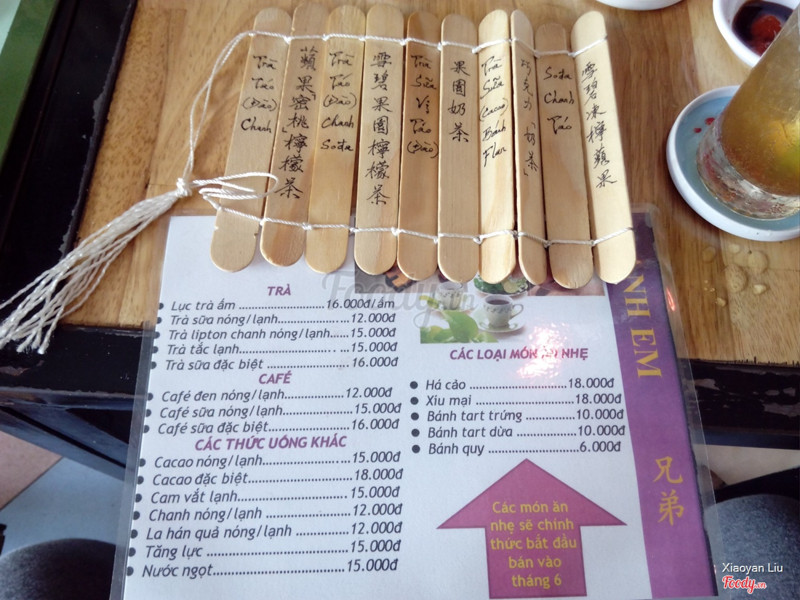 Trà
Táo
(Đào)
Chanh
蘋果「蜜桃」檸檬茶
Trà
Táo
(Đào)
Chanh
Soda
雪碧果園檸檬茶
Trà
Sữa
Vị
Táo
(Đào)
果園奶茶
Trà
Sữa
(Cacao)
Bánh
Flan
巧克力「奶茶」
Soda
Chanh
Táo
雪碧冰檸蘋果
TRÀ
Lục trà ấm 16.000đ/ấm
Trà sữa nóng/lạnh 12.000đ
Trà lipton chanh nóng/lạnh 15.000đ
Trà tắc lạnh 15.000đ
Trà sữa đặc biệt 16.000đ
CAFÉ
Café đen nóng/lạnh 12.000đ
Café sữa nóng/lạnh 15.000đ
Café sữa đặc biệt 16.000đ
CÁC THỨC UỐNG KHÁC
Cacao nóng/lạnh 15.000đ
Cacao đặc biệt 18.000đ
Cam vắt lạnh 15.000đ
Chanh nóng/lạnh 12.000đ
La hán quả nóng/lạnh 12.000đ
Tăng lực 15.000đ
Nước ngọt 15.000đ
CÁC LOẠI MÓN ĂN NHẸ
Há cảo 18.000đ
Xíu mại 18.000đ
Bánh tart trứng 10.000đ
Bánh tart dừa 10.000đ
Bánh quy 6.000đ
Các món ăn
nhẹ sẽ chính
thức bắt đầu
bán vào
tháng 6
NH EM
兄弟
Foody.vn
Xiaoyan Liu
Foody.vn